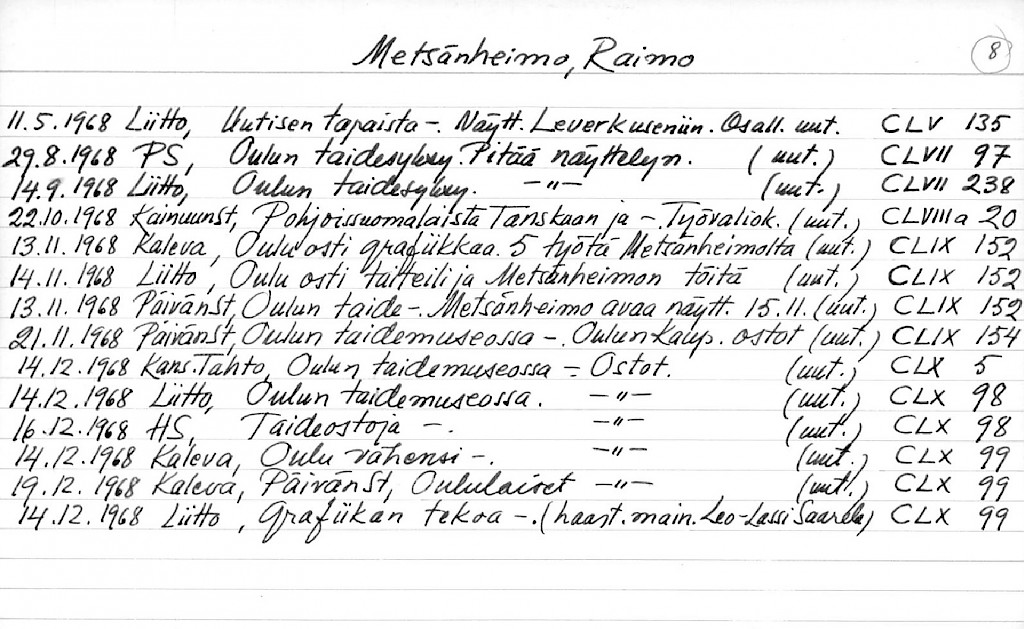 Metsänheimo, Raimo 8
11.5.1968 Liitto, Uutisen tapaista -. Näytt. Leverkuseniin. Osall. uut. CLV 135
29.8.1968 PS, Oulun taidesyksy. Pitää näyttelyn. (uut.) CLVII 97
14.9.1968 Liitto, Oulun taidesyksy. -"- (uut.) CLVII 238
22.10.1968 Kainuunst, Pohjoissuomalaista Tanskaan ja -. Työvaliok. (uut.) CLVIIIa 20
13.11.1968 Kaleva, Oulu osti grafiikkaa. 5 työtä Metsänheimolta (uut.) CLIX 152
14.11.1968 Liitto, Oulu osti taiteilija Metsänheimon töitä (uut.) CLIX 152
13.11.1968 Päivänst, Oulun taide-. Metsänheimo avaa näytt. 15.11. (uut.) CLIX 152
21.11.1968 Päivänst, Oulun taidemuseossa -. Oulun kaup. ostot (uut.) CLIX 154
14.12.1968 Kans.Tahto, Oulun taidemuseossa -. Ostot. (uut.) CLX 5
14.12.1968 Liitto, Oulun taidemuseossa. -"- (uut.) CLX 98
16.12.1968 HS, Taideostoja -. -"- (uut.) CLX 98
14.12.1968 Kaleva, Oulu vähensi -. -"- (uut.) CLX 99
19.12.1968 Kaleva, Päivänst, Oululaiset -"- (uut.) CLX 99
14.12.1968 Liitto, Grafiikan tekoa -. (haast. main. Leo-Lassi Saarela) CLX 99